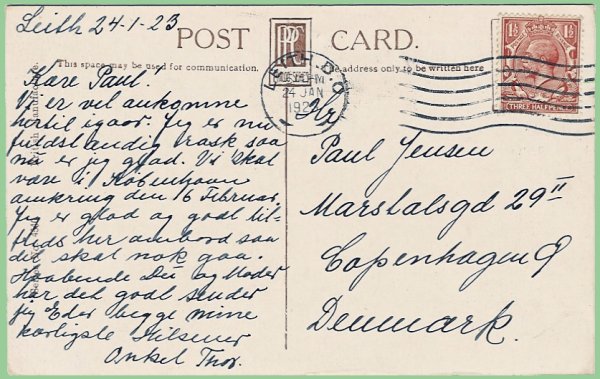 Leith 24-1-23
POST CARD.
This space may be used for communication.
The address only to be written here
Kære Paul.
Vi er vel ankomne
hertil igaar. Jeg er nu
fuldstændig rask saa
nu er jeg glad. Vi skal
være i København
omkring den 6 Februar,
Jeg er glad og godt til-
freds her ombord saa
det skal nok gaa.
Haabende Du og Moder
har det godt sender
jeg Eder begge mine
kærligste Hilsener
Onkel Thor.
LEITH. D.O
24 JAN
THREE HALFPENCE
Hr
Paul Jensen
Marstalsgd 29 II
Copenhagen Ø
Denmark.